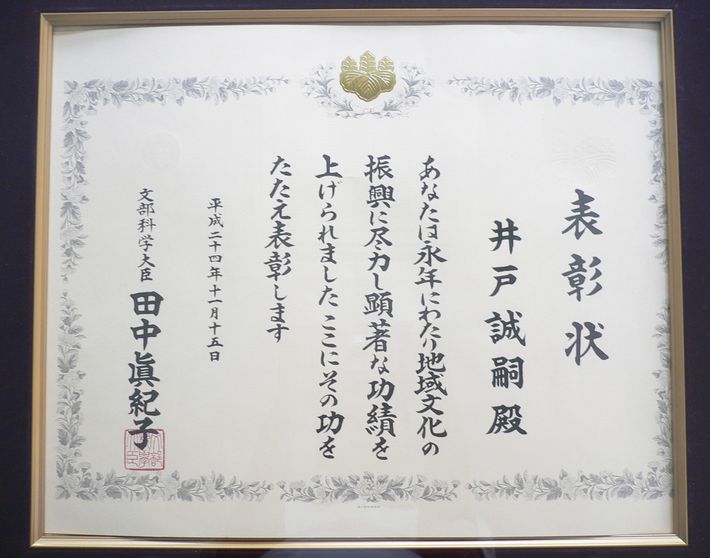 表彰状
井戸誠嗣殿
あなたは永年にわたり地域文化の
振興に尽力し顕著な功績を
上げられました ここにその功を
たたえ表彰します
平成二十四年十一月十五日
文部科学大臣 田中眞紀子